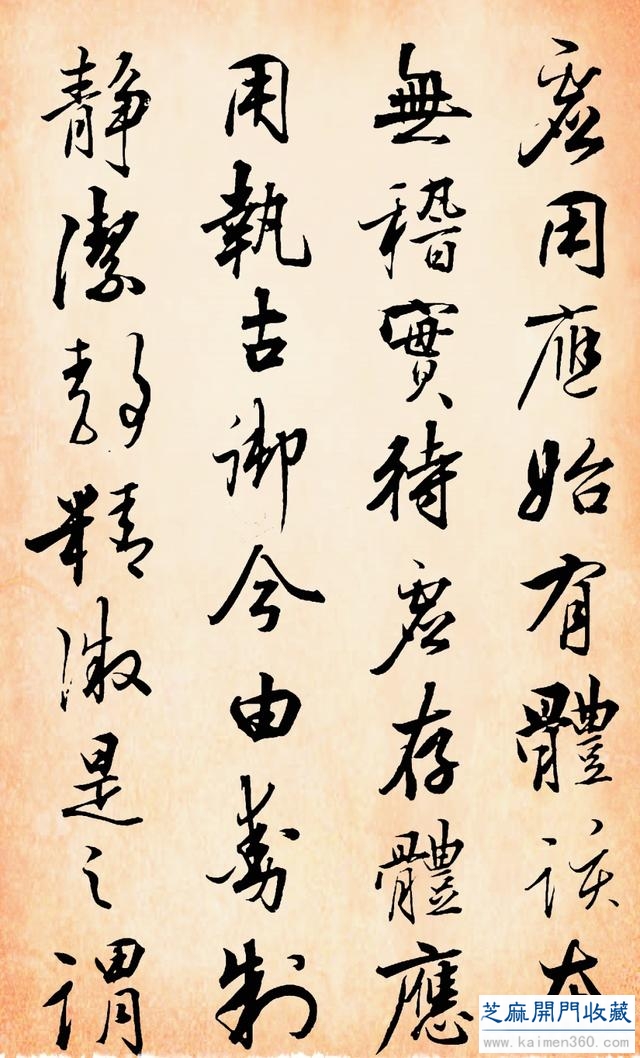 虛用應始有體該本
無稽實待虛存體應
用執古御今由動制
靜潔靜精微是之謂
芝麻開門收藏
www.kaimen360.com